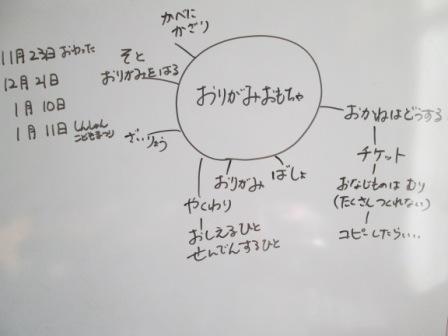 かべに
かざり
11月23日 おわった
12月21日
1月10日
1月11日 しんしゅん
こどもまつり
そと
おりがみをはる
ざいりょう
おりがみおもちゃ
おかねはどうする
チケット
おなじものは むり
(たくさんつくれない)
コピーしたらい…
ばしょ
おりがみ
やくわり
おしえるひと
せんでんするひと